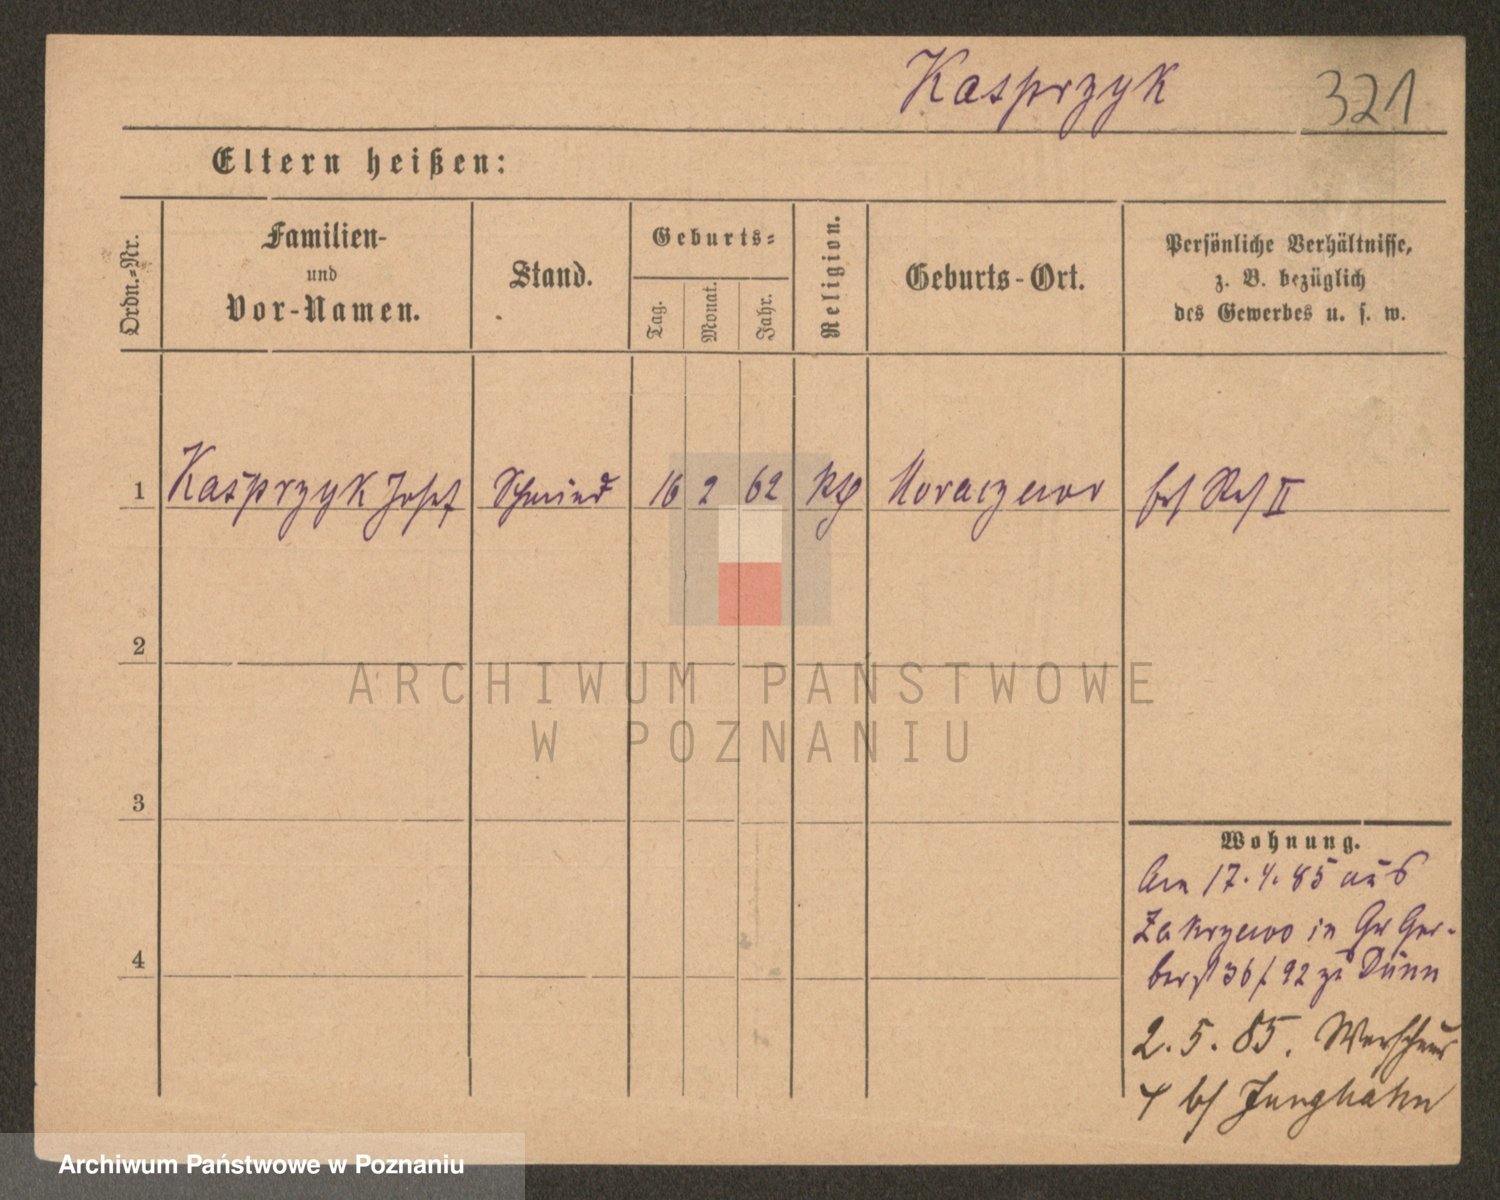 Kasprzyk 321
Eltern heißen:
Ordn.-Nr.
Familien-
und
Vor-Namen.
Stand.
Geburts-
Tag.
Monat.
Jahr.
Religion.
Geburts-Ort.
Persönliche Verhältnisse,
z. B. bezüglich
des Gewerbes u. s. w.
1 Kasprzyk Josef Schmied 16 2 62 kth II
2
3
4
Wohnung.
Am 17. 4. 85 aus
Zakrzewo in Gr Ger-
berst 36 f 92 zu Dünn
2. 5. 85.
4 bei Junghahn
ARCHIWUM PAŃSTWOWE
W POZNANIU
Archiwum Państwowe w Poznaniu